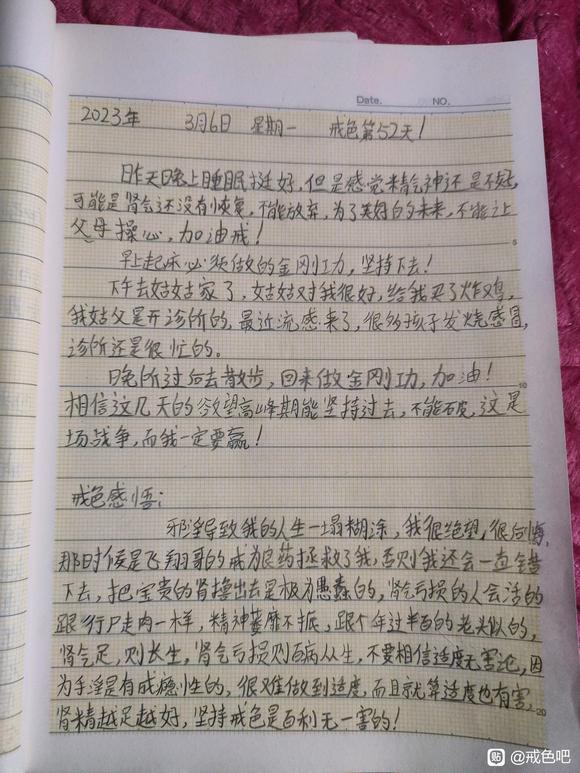 Date. NO.
2023年 3月6日 星期一 戒色第52天!
昨天晚上睡眠挺好,但是感觉精气神还是不足,
可能是肾气还没有恢复,不能放弃,为了美好的未来,不能让
父母操心,加油戒!
早上起床必须做的金刚功,坚持下去!
下午去姑姑家了,姑姑对我很好,给我买了炸鸡,
我姑父是开诊所的,最近流感来了,很多孩子发烧感冒,
诊所还是很忙的。
5
晚饭过后去散步,回来做金刚功,加油!
10
相信这几天的欲望高峰期能坚持过去,不能破,这是
场战争,而我一定要赢!
戒色感悟:
邪淫导致我的人生一塌糊涂,我很绝望,很后悔,
那时候是飞翔哥的戒为良药拯救了我,否则我还会一直
下去,把宝贵的肾精撸出去是极为愚蠢的,肾气亏损的人会活的
跟行尸走肉一样,精神萎靡不振,跟个年过半百的老头似的,
肾气足,则长生,肾气亏损则百病丛生,不要相信适度无害论,因
为手淫是有成瘾性的,很难做到适度,而且就算适度也有害,
20
肾精越足越好,坚持戒色是百利无一害的!
贴 @戒色吧